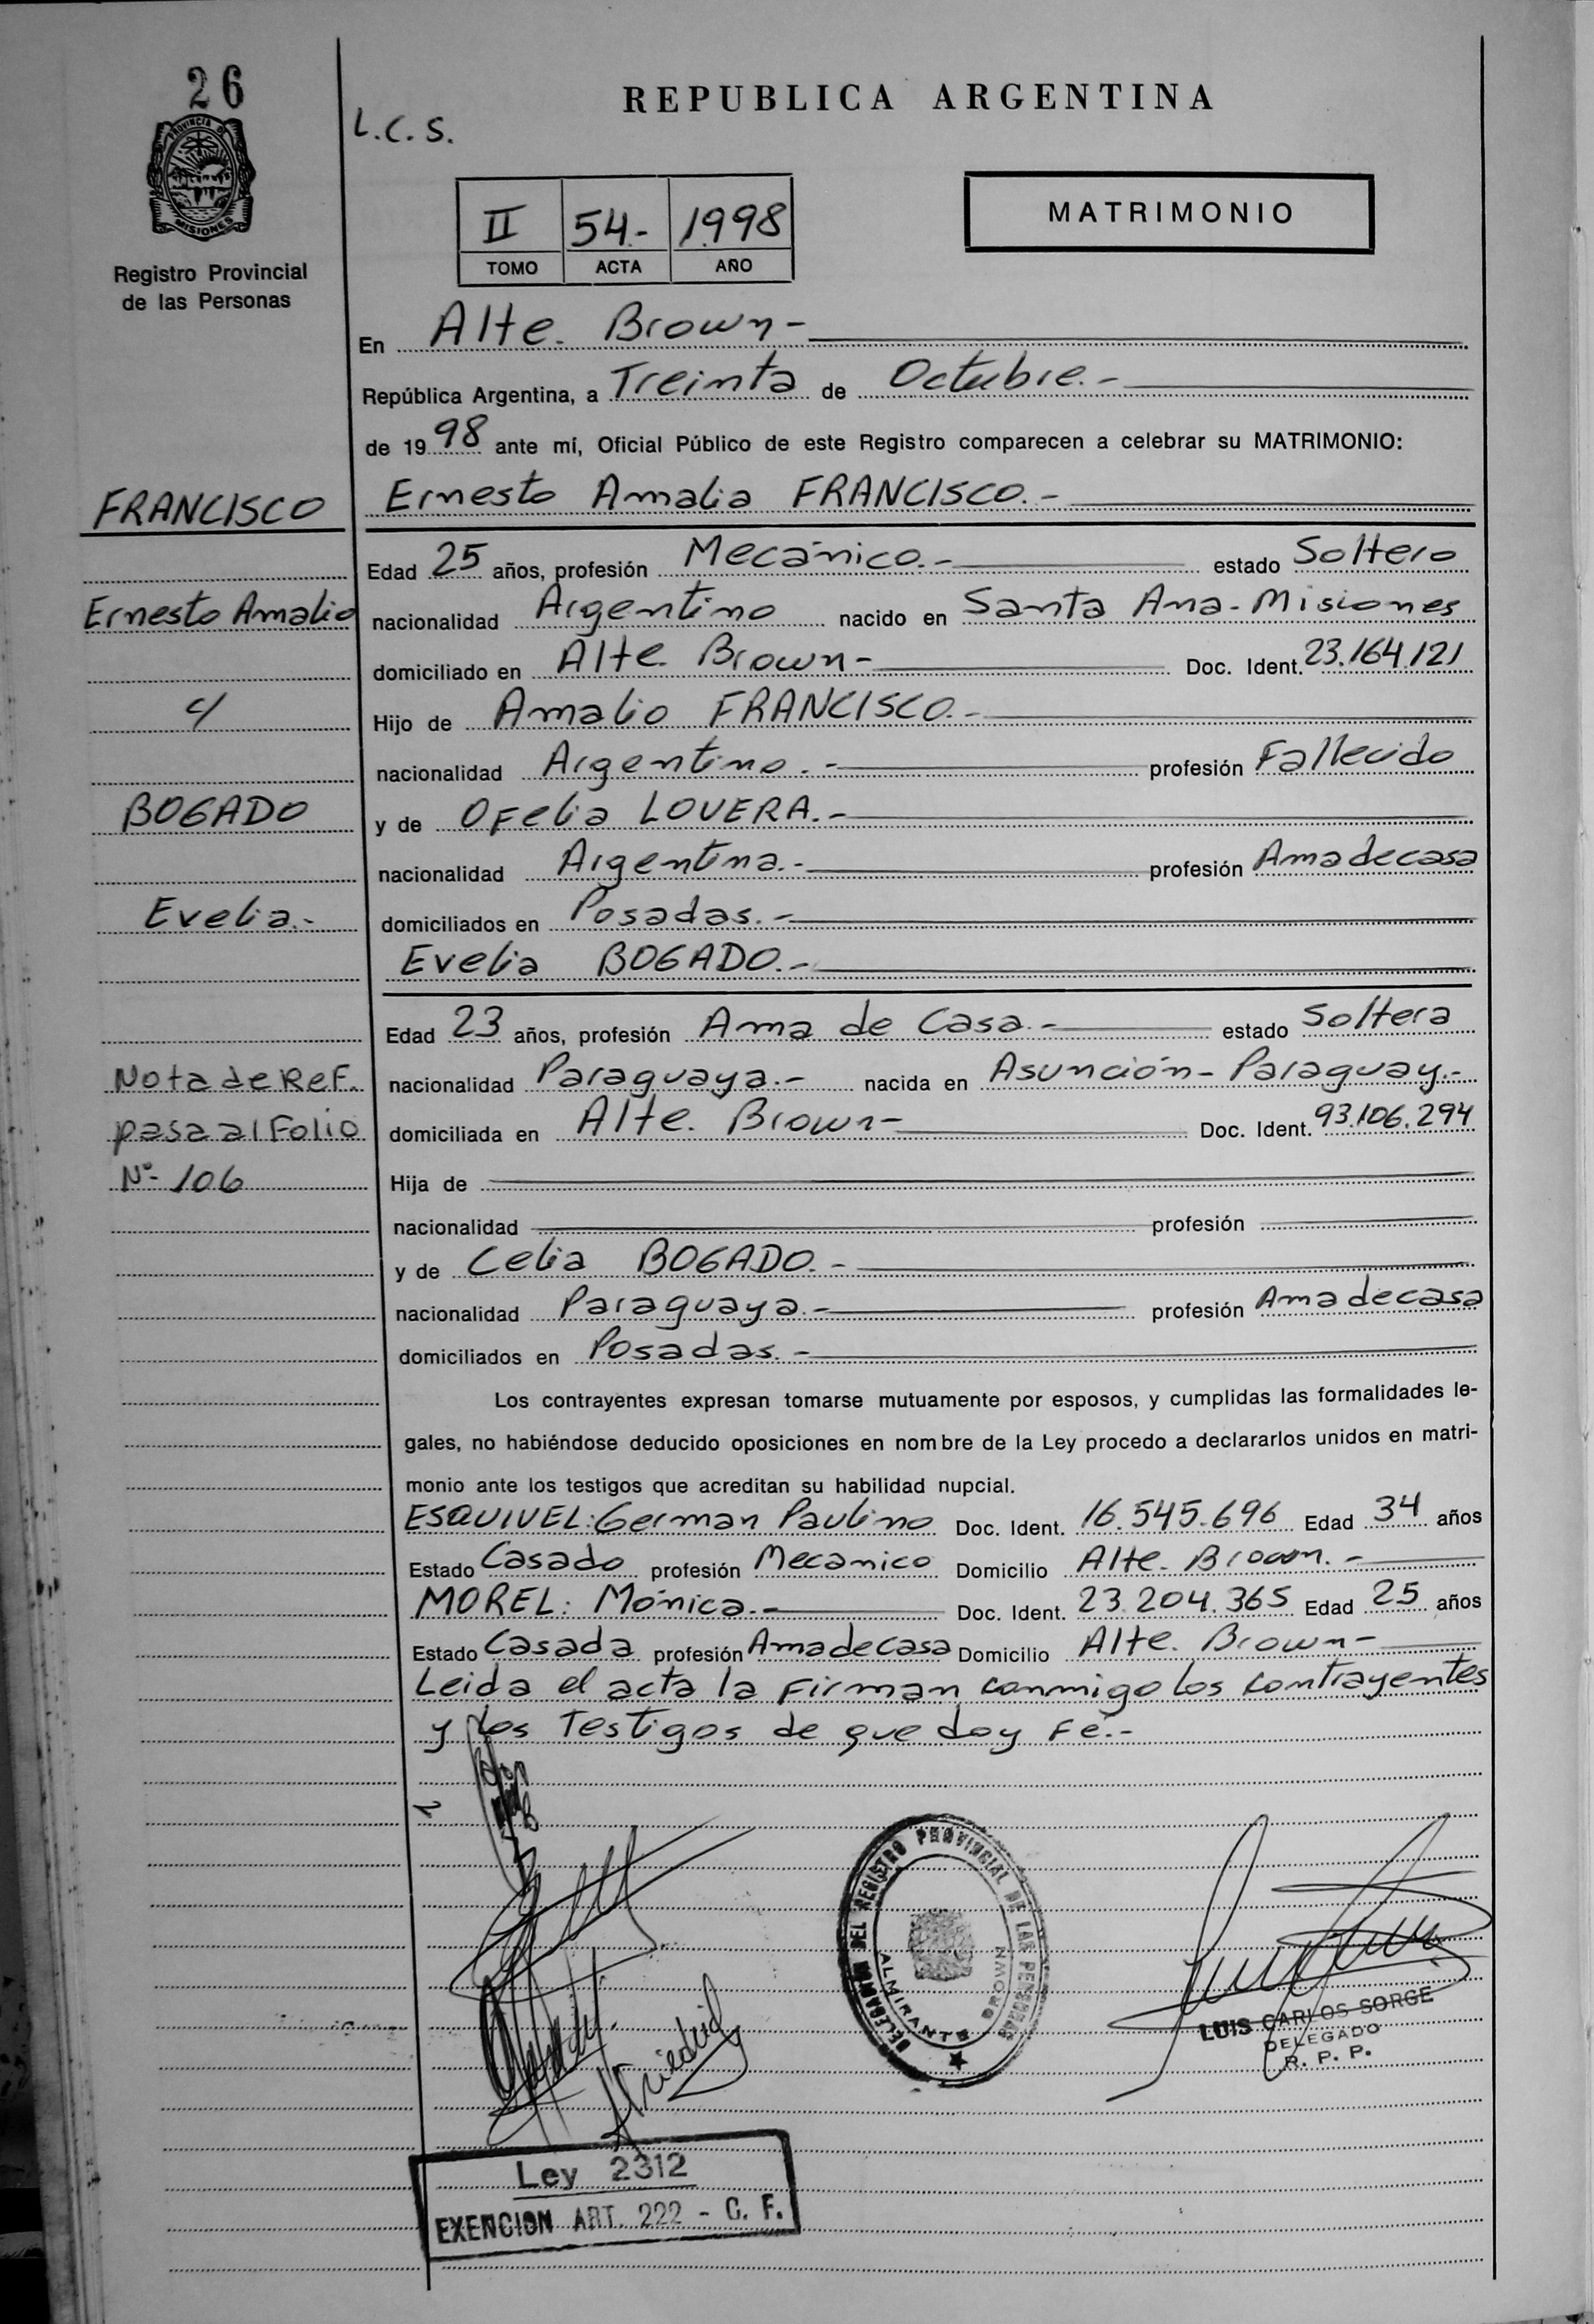 26
PROVINCIA DE
MISIONES
Registro Provincial
de las Personas
L.C.S.
REPUBLICA ARGENTINA
II 54.- 1998
TOMO ACTA AÑO
MATRIMONIO
En Alte. Brown-
República Argentina, a Treinta de Octubre.-
de 1998 ante mí, Oficial Público de este Registro comparecen a celebrar su MATRIMONIO:
FRANCISCO
Ernesto Amalio
c/
BOGADO
Evelia.-
Nota de Ref.
pasa al Folio
Nº- 106
Ernesto Amalia FRANCISCO.-
Edad 25 años, profesión Mecánico.- estado Soltero
nacionalidad Argentino nacido en Santa Ana-Misiones
domiciliado en Alte. Brown- Doc. Ident. 23.164.121
Hijo de Amalio FRANCISCO.-
nacionalidad Argentino.- profesión Fallecido
y de Ofelia LOVERA.-
nacionalidad Argentina.- profesión Ama de casa
domiciliados en Posadas.-
Evelia BOGADO.-
Edad 23 años, profesión Ama de Casa.- estado Soltera
nacionalidad Paraguaya.- nacida en Asunción- Paraguay.-
domiciliada en Alte. Brown- Doc. Ident. 93.106.294
Hija de
nacionalidad profesión
y de Celia BOGADO.-
nacionalidad Paraguaya.- profesión Ama de casa
domiciliados en Posadas.-
Los contrayentes expresan tomarse mutuamente por esposos, y cumplidas las formalidades le-
gales, no habiéndose deducido oposiciones en nombre de la Ley procedo a declararlos unidos en matri-
monio ante los testigos que acreditan su habilidad nupcial.
ESQUIVEL: German Paulino Doc. Ident. 16.545.696 Edad 34 años
Estado Casado profesión Mecanico Domicilio Alte. Brown.-
MOREL: Mónica.- Doc. Ident. 23.204.365 Edad 25 años
Estado Casada profesión Ama de casa Domicilio Alte. Brown-
Leida el acta la Firman conmigo los contrayentes
y los Testigos de que doy Fé.-
DELEGACION DEL REGISTRO PROVINCIAL DE LAS PERSONAS
ALMIRANTE BROWN
LUIS CARLOS SORGE
DELEGADO
R. P. P.
Ley 2312
EXENCION ART. 222 - C. F.